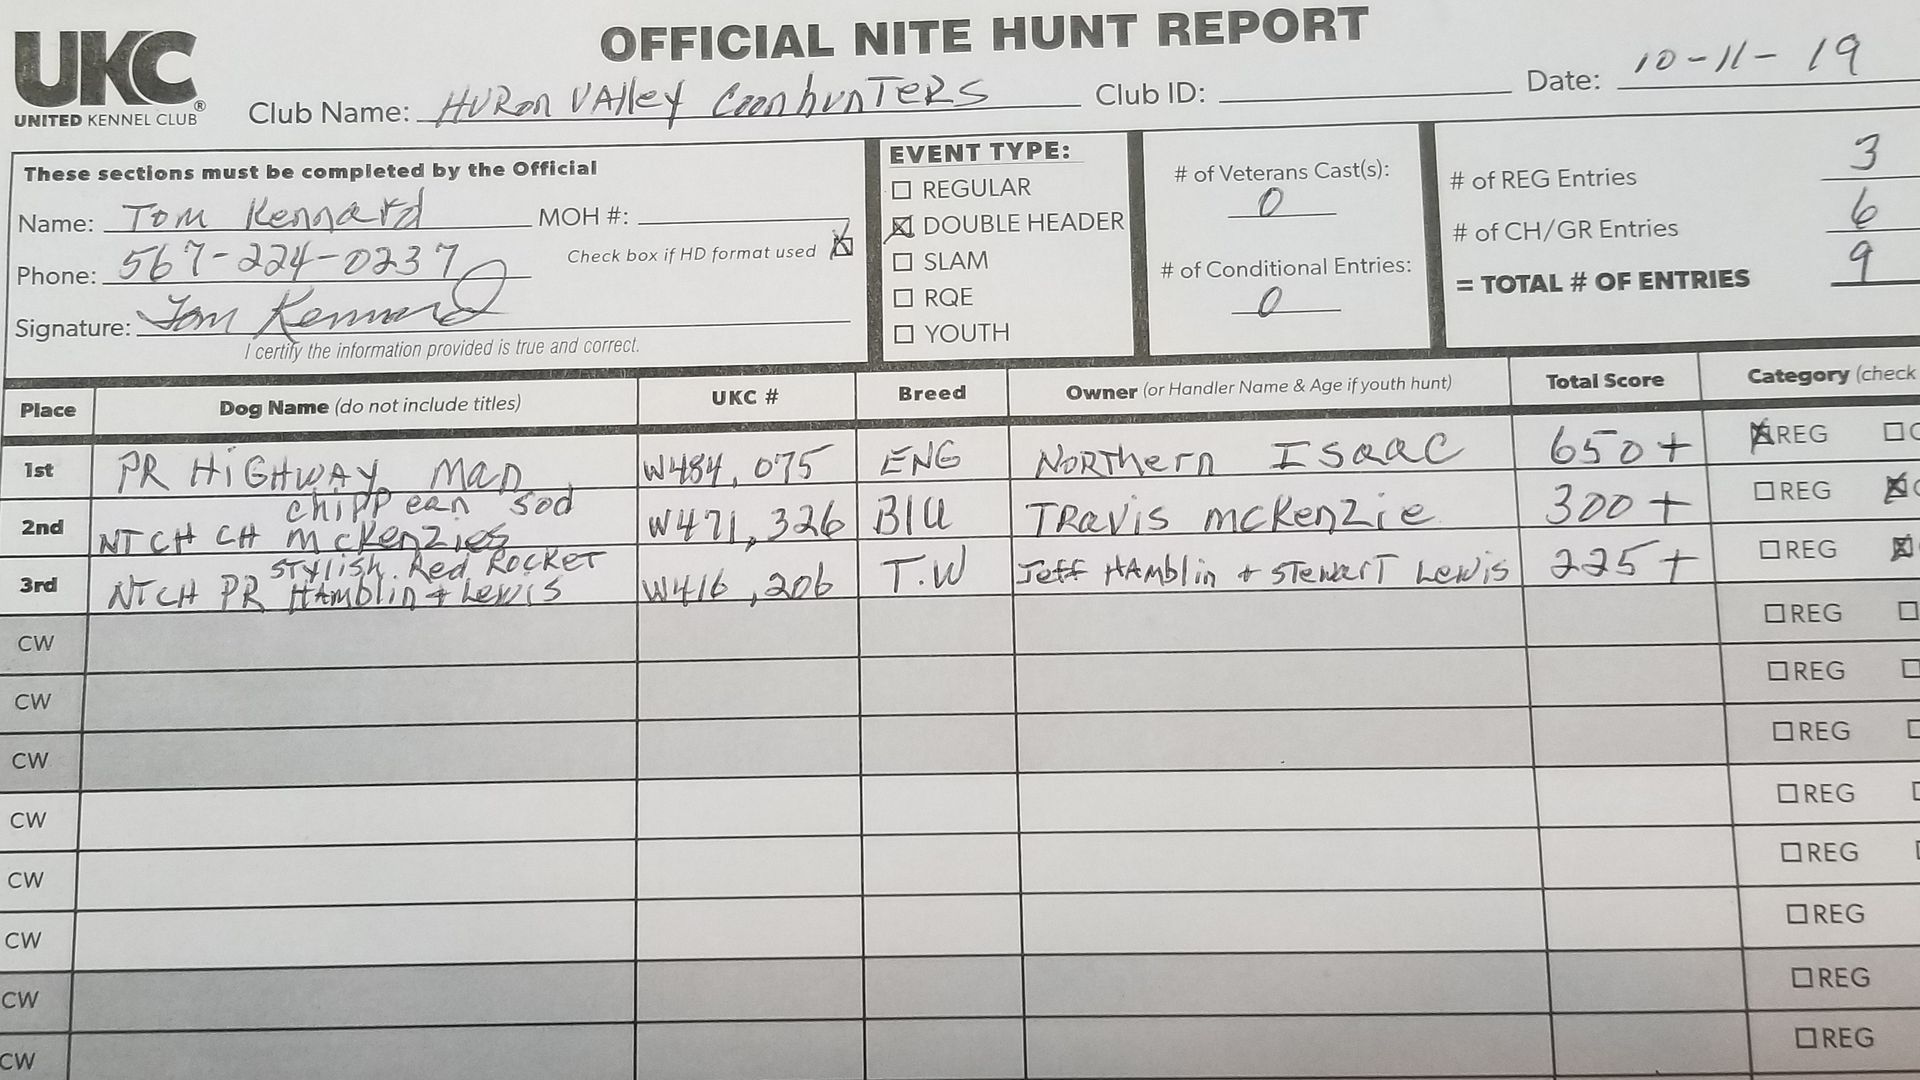 UKC®
UNITED KENNEL CLUB
OFFICIAL NITE HUNT REPORT
Club Name: HURon VAlley CoonhunTERS Club ID: Date: 10-11-19
These sections must be completed by the Official
Name: Tom Kennard MOH #:
Phone: 567-224-0237 Check box if HD format used
Signature: Tom Kennard
I certify the information provided is true and correct.
EVENT TYPE:
REGULAR
DOUBLE HEADER
SLAM
RQE
YOUTH
# of Veterans Cast(s):
0
# of Conditional Entries:
0
# of REG Entries 3
# of CH/GR Entries 6
= TOTAL # OF ENTRIES 9
Place Dog Name (do not include titles) UKC # Breed Owner (or Handler Name & Age if youth hunt) Total Score Category (check
1st PR HiGHWAY Man W484,075 ENG NORThern ISaac 650+ REG
chipp ean sod
2nd NTCH CH McKenzies W471,326 Blu TRavis mcKenzie 300+ REG
STylish Red RocKET
3rd NTCH PR HAmblin + Lewis W416,206 T.W Jeff HAmblin + STewarT Lewis 225+ REG
CW REG
CW REG
CW REG
CW REG
CW REG
CW REG
CW REG
CW REG